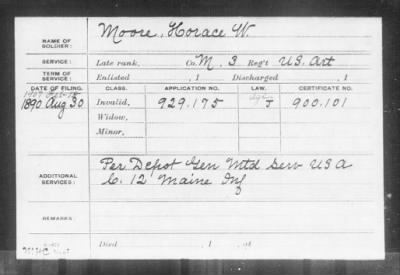 NAME OF SOLDIER: Moore, Horace W.
SERVICE: Late rank, Co. M. 3 Reg't U.S. Art
TERM OF SERVICE: Enlisted , 1 Discharged , 1
DATE OF FILING. CLASS. APPLICATION NO. LAW. CERTIFICATE NO.
1890 Aug 30 Invalid, 929.175 J 900.101
Widow,
Minor,
ADDITIONAL SERVICES: Per. Depot Gen Mtd Serv U S A
C. 12 Maine Inf
Died , 1 , at